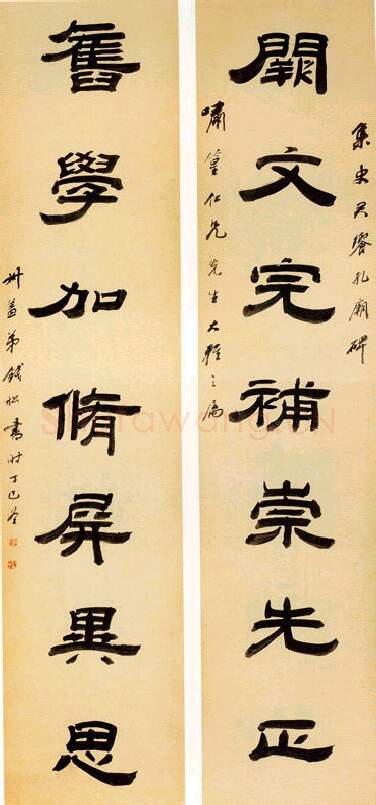 集史君饗孔廟碑
闕文完補崇先正
嘯篁仁兄先生大雅之屬
舊學加脩屏異思
叔蓋弟錢松書時丁巳冬